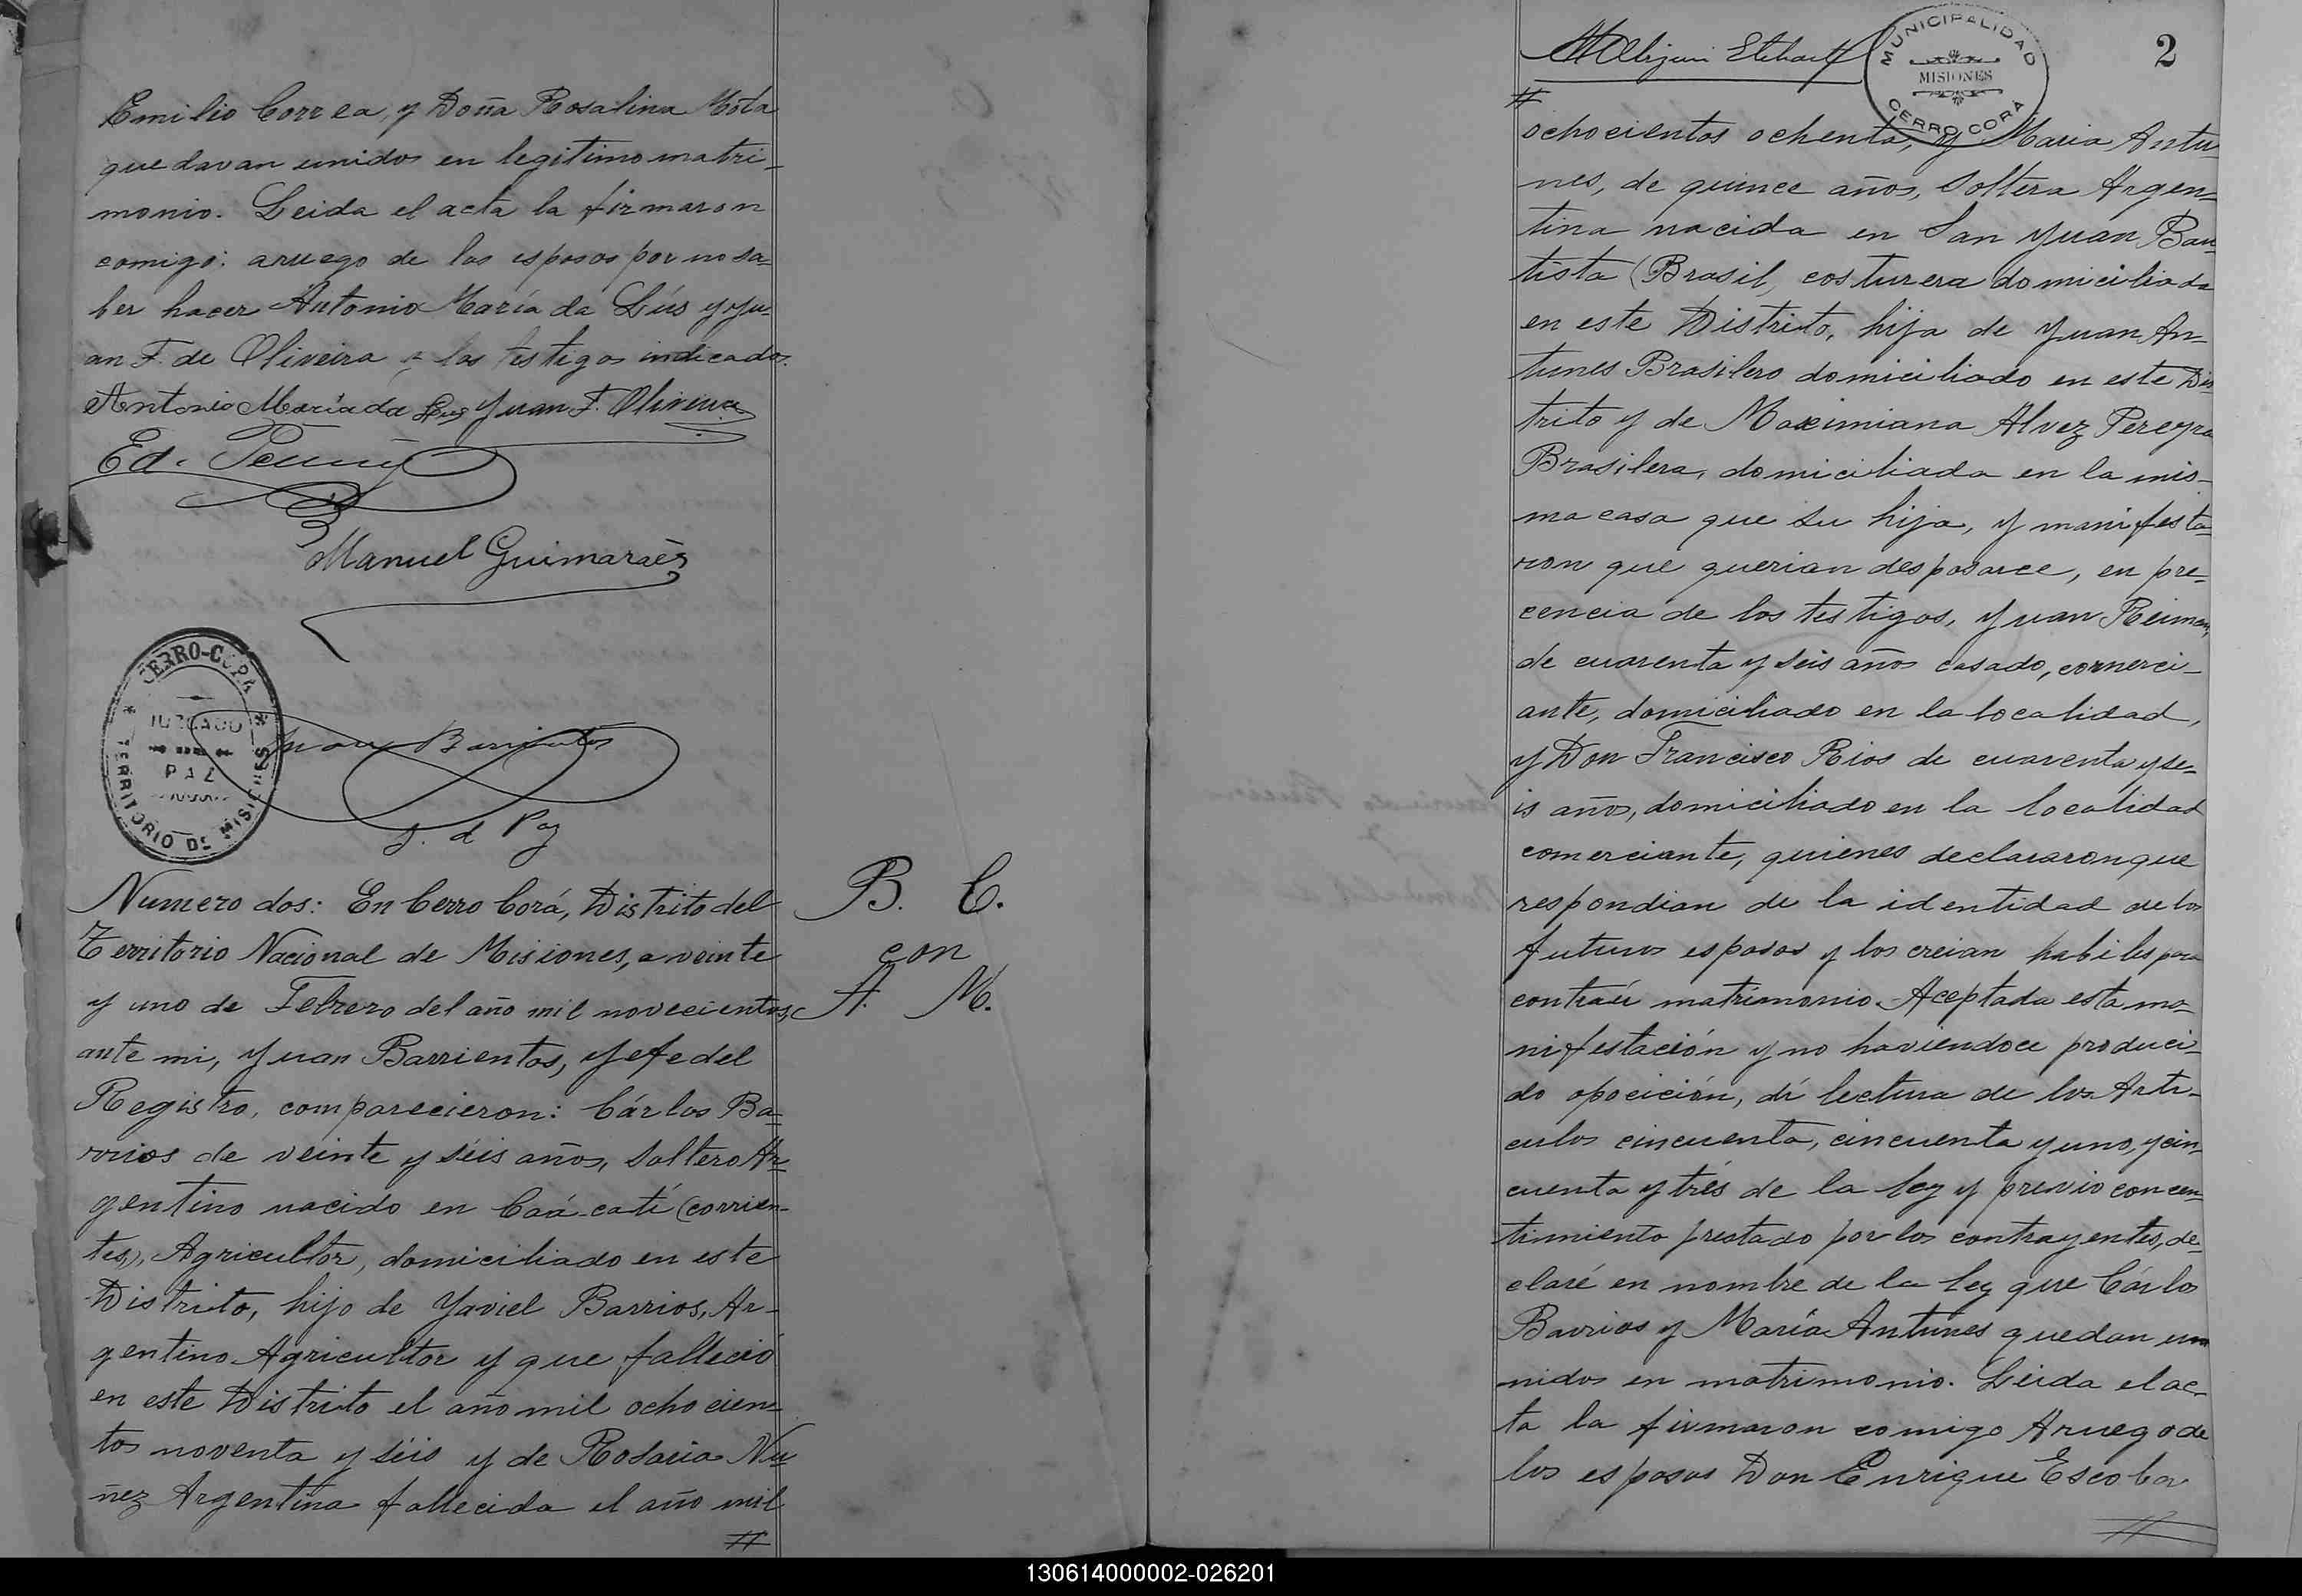 Emilio Correa, y Doña Rosalina Mota
quedavan unidos en legitimo matri-
monio. Leida el acta la firmaron
comigo: aruego de los esposos por no sa-
ber hacer Antonio María da Lús y Yu-
an F. de Oliveira y los testigos indicados.
Antonio María da Lus Yuan F. Oliveira
Ed.
Manuel Guimaraẽs
CERRO-CORA
JUZGADO
PAZ
TERRITORIO DE MISIONES
Juan Barrientos
J. d Paz
Numero dos: En Cerro Corá, Distrito del
Territorio Nacional de Misiones, a veinte
y uno de Febrero del año mil novecientos,
ante mi, Yuan Barrientos, Yefe del
Registro, comparecieron: Cárlos Ba-
rrios de veinte y séis años, soltero Ar-
gentino nacido en Caá-catí (corrien-
tes), Agricultor, domiciliado en este
Distrito, hijo de Yaviel Barrios, Ar-
gentino Agricultor y que falleció
en este Distrito el año mil ochocien-
tos noventa y séis y de Rosaria Nu-
ñez Argentina fallecida el año mil
#
B. C.
con
A. M.
MUNICIPALIDAD
MISIONES
CERRO CORA
2
#
ochocientos ochenta, y Maria Antu-
nes, de quince años, soltera Argen-
tina nacida en San Yuan Bau-
tista (Brasil, costurera domiciliada
en este Distrito, hija de Yuan An-
tunes Brasilero domiciliado en este Dis
trito y de Maximiana Alvez Pereyra
Brasilera, domiciliada en la mis-
ma casa que su hija, y manifesta-
ron que querian desposarce, en pre-
cencia de los testigos, Yuan Reimen,
de cuarenta y séis años casado, comerci-
ante, domiciliado en la localidad,
y Don Francisco Rios de cuarenta y se-
is años, domiciliado en la localidad
comerciante, quienes declararon que
respondian de la identidad de los
futuros esposos y los creian habiles para
contraér matrimonio. Aceptada esta ma-
nifestación y no haviendoce produci-
do oposición, dí lectura de los Arti-
culos cincuenta, cincuenta y uno, y cin-
cuenta y trés de la ley y previo concen-
timiento prestado por los contrayentes, de-
claré en nombre de la Ley que Cárlos
Barrios y María Antunes quedan u
nidos en matrimonio. Leida el ac-
ta la firmaron comigo Aruego de
los esposos Don Enrique Escobar
#
130614000002-026201